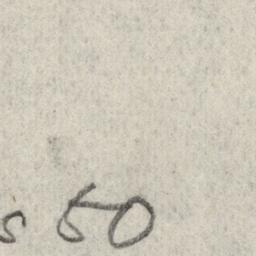 s 50